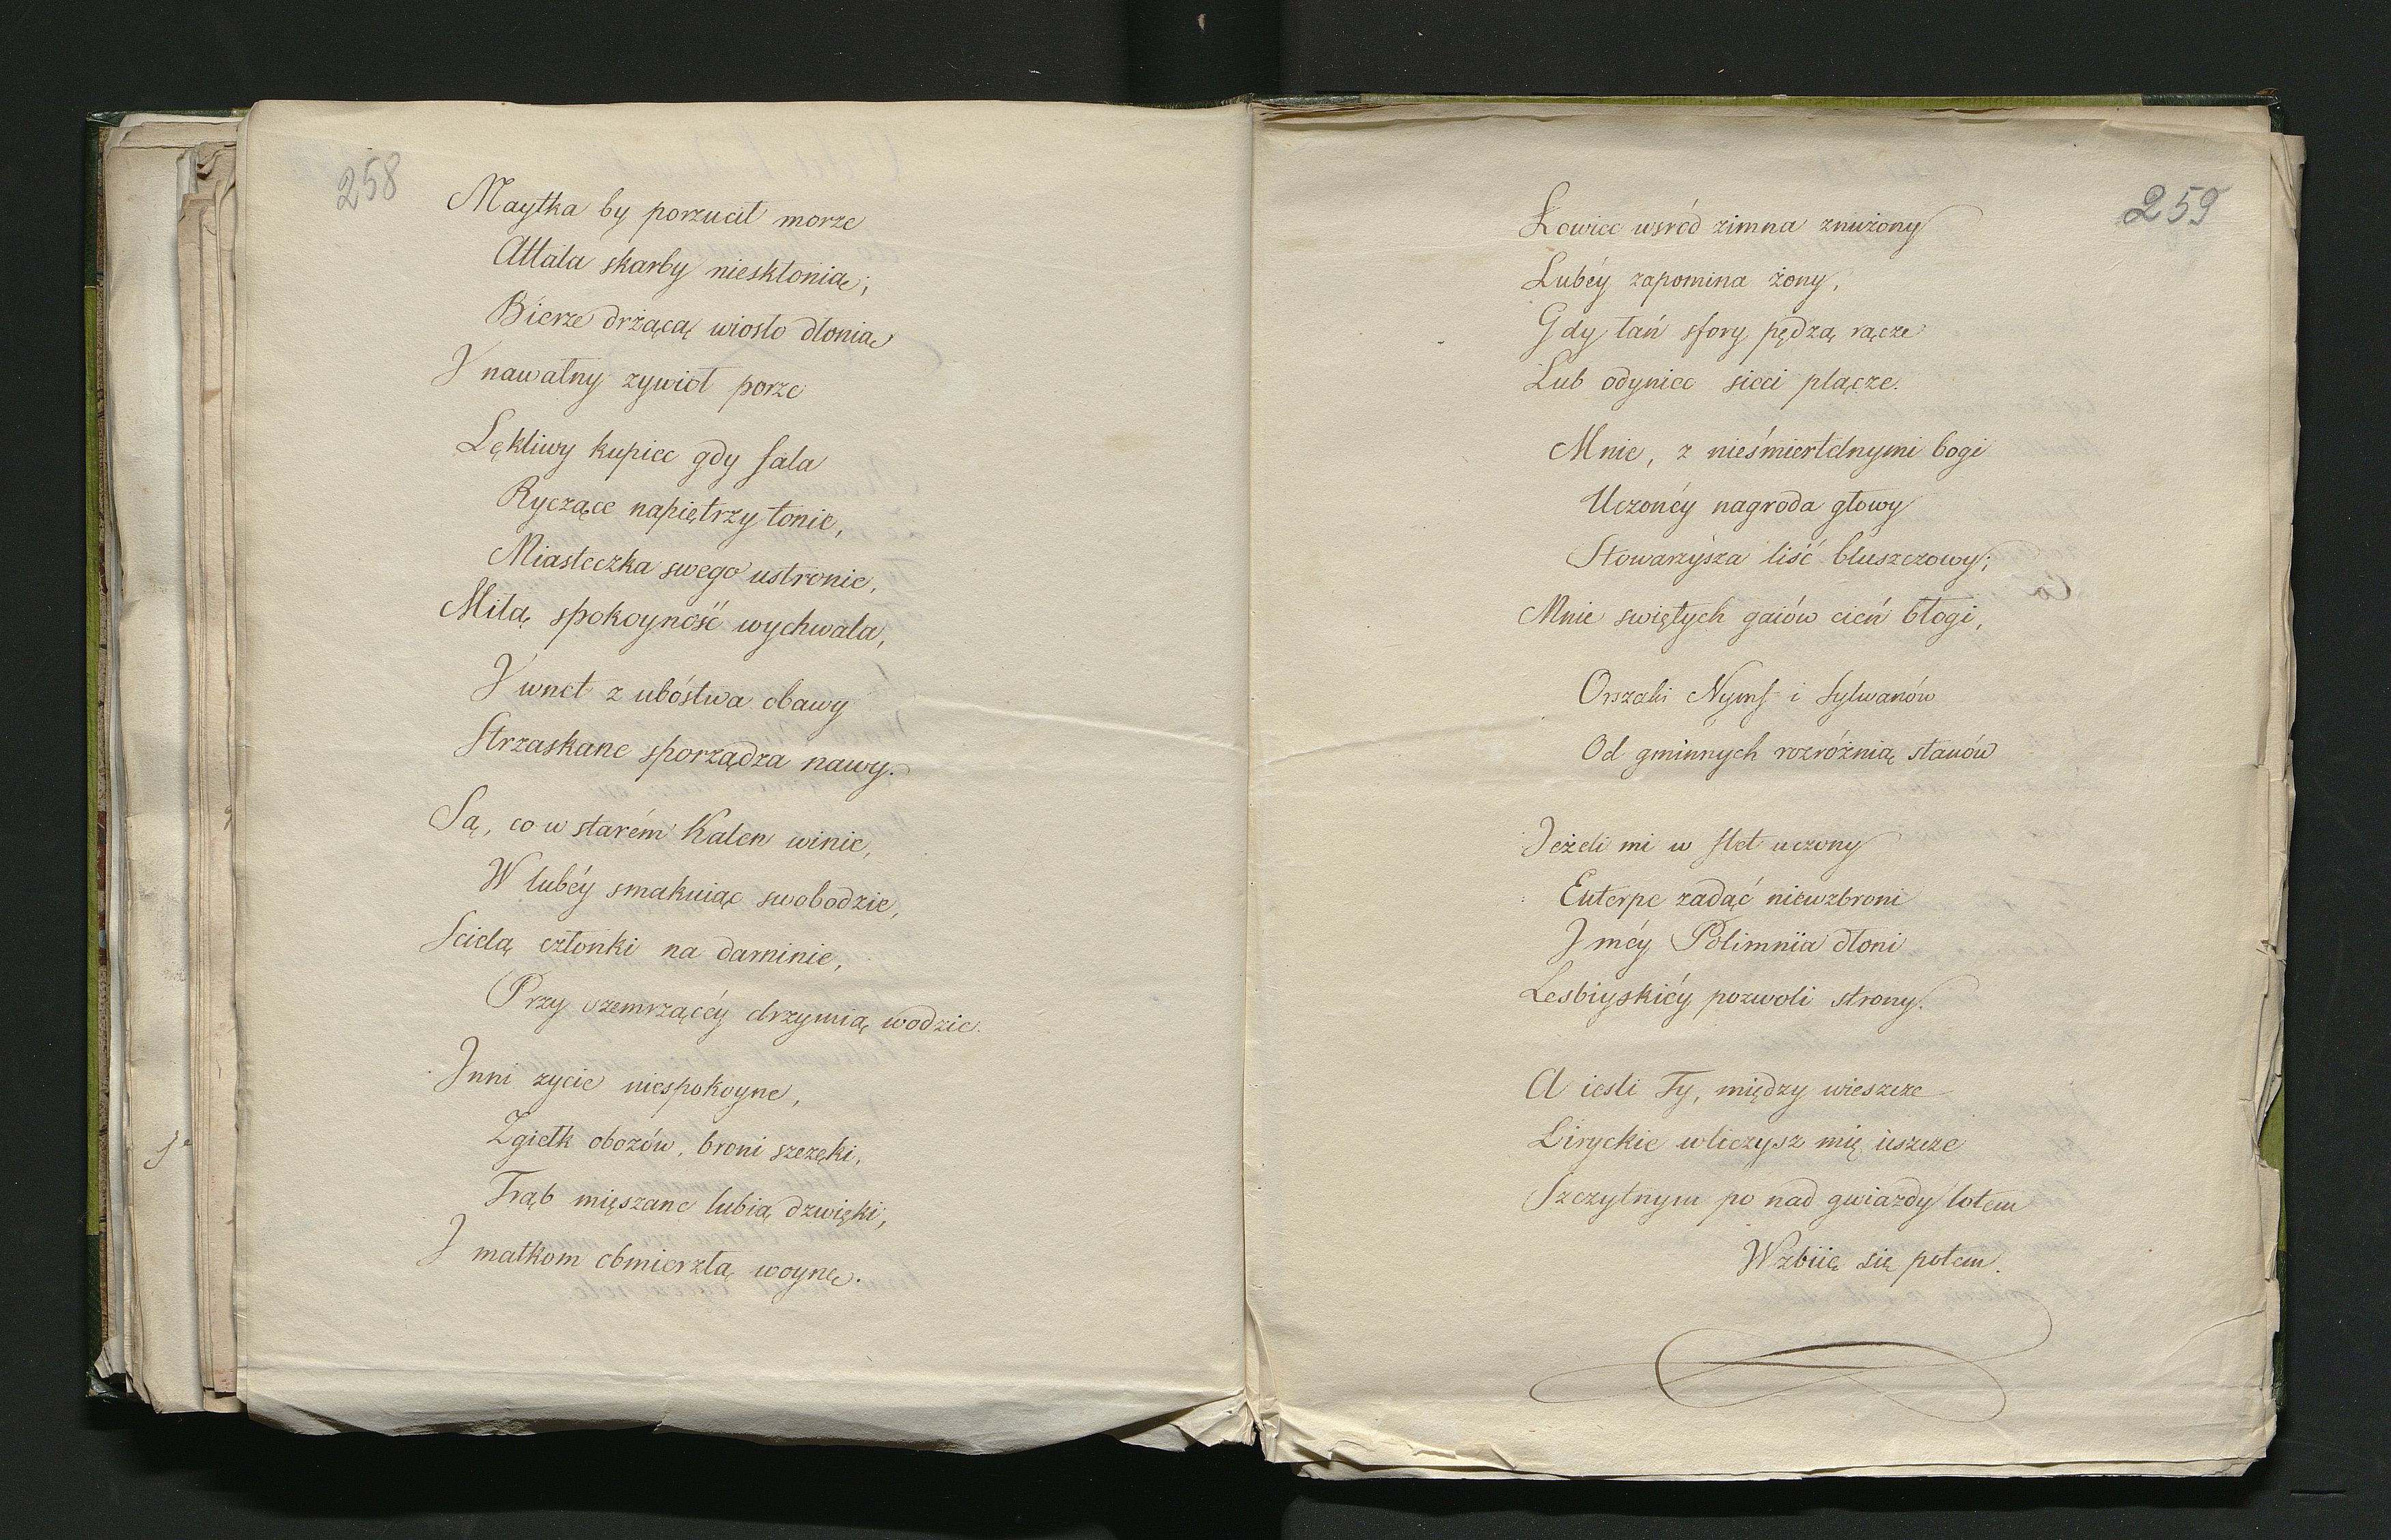 258
Maytka by porzucił morze
Attala skarby niesktonią;
Bierze drżącą wiosło dłonią
I nawalny zywioł porze
Lękliwy kupiec gdy fala
Ryczące napiętrzy tonie,
Miasteczka swego ustronie,
Miłą spokoyność wychwala,
I wnet z ubóstwa obawy
Strzaskane sporządza nawy.
Są, co w starém Kalen winie,
W lubéy smakuiąc swobodzie,
Scielą członki na darninie,
Przy szemrzącéy drzymią wodzie.
Inni zycie niespokoyne,
Zgiełk obozów, broni szczęki,
Trąb mięszane lubią dzwięki,
I matkom obmierzłą woynę.
259
Łowiec wsród zimna znużony
Lubéy zapomina żony,
Gdy łań sfory pędzą rącze
Lub odyniec sieci plącze.
Mnie, z nieśmiertelnymi bogi
Uczonéy nagroda głowy
Stowarzysza liść bluszczowy;
Mnie swiętych gaiów cień błogi,
Orszaki Nymf i Sylwanów
Od gminnych rozróżnią stanów
Jeżeli mi w flet uczony
Euterpe zadąć niewzbroni
I méy Polimniia dłoni
Lesbiyskiéy pozwoli strony.
A iesli Ty, między wieszcze
Liryckie wliczysz mię ieszcze
Szczytnym po nad gwiazdy lotem
Wzbiię się potem.